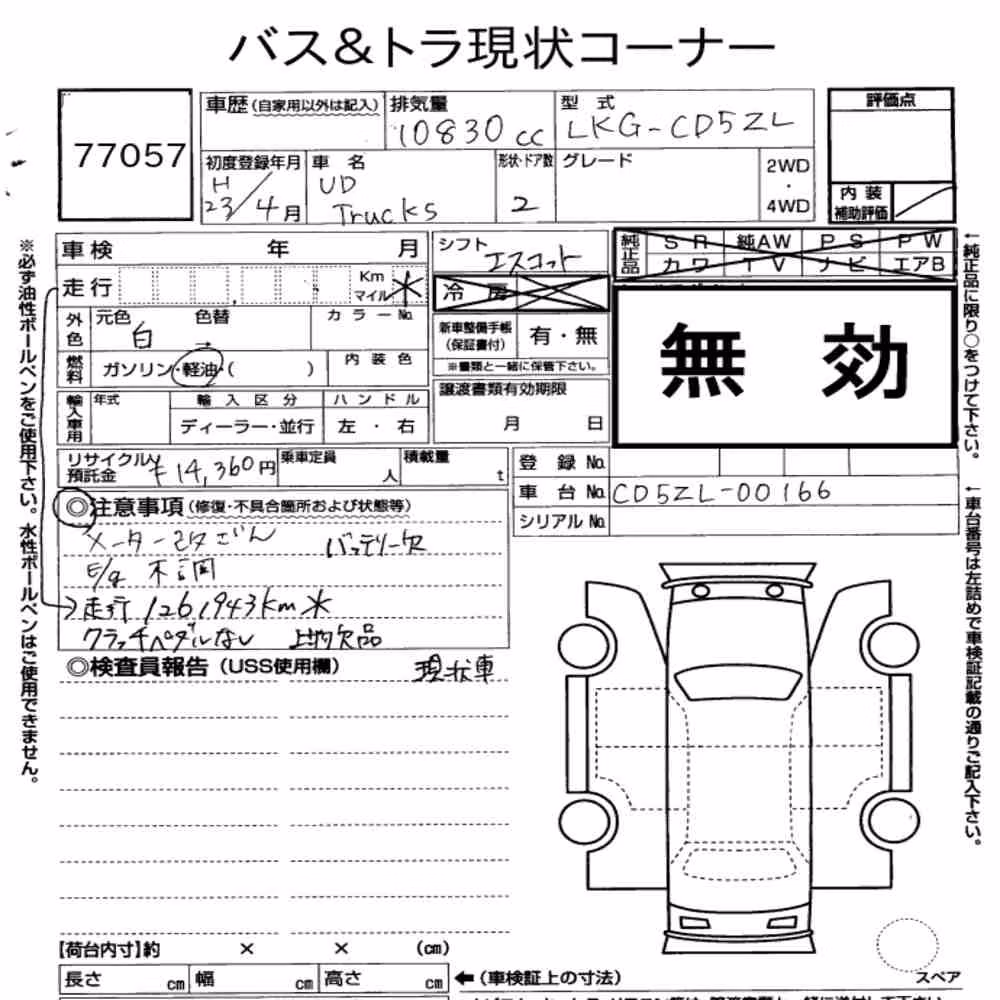 バス&トラ現状コーナー
77057
車歴(自家用以外は記入)
排気量
10830cc
型式
LKG-CD5ZL
評価点
初度登録年月
H23/4月
車名
UD Trucks
形状・ドア数
2
グレード
2WD・4WD
内装補助評価
※必ず油性ボールペンをご使用下さい。水性ボールペンはご使用できません。
車検 年 月
シフト
エスコット
純正品
SR 純AW PS PW
カワ TV ナビ エアB
走行 Km マイル
冷房
外色 元色 白 色替 → カラーNo.
新車整備手帳(保証書付) 有・無
※書類と一緒に保管下さい。
無効
燃料 ガソリン・軽油・( ) 内装色
輸入車用 年式 輸入区分 ハンドル
ディーラー・並行 左・右
譲渡書類有効期限
月 日
リサイクル預託金 ¥14,360円 乗車定員 人 積載量 t
登録No.
車台No. CD5ZL-00166
シリアルNo.
◎注意事項(修復・不具合箇所および状態等)
メーター改ざん バッテリー欠
E/g 不調
走行 126,943km
クラッチペダルない 上物欠品
◎検査員報告(USS使用欄) 現状車
←純正品に限り○をつけて下さい。
←車台番号は左詰めで車検証記載の通りご記入下さい。
【荷台内寸】約 × × (cm)
長さ cm 幅 cm 高さ cm
←(車検証上の寸法)
スペア